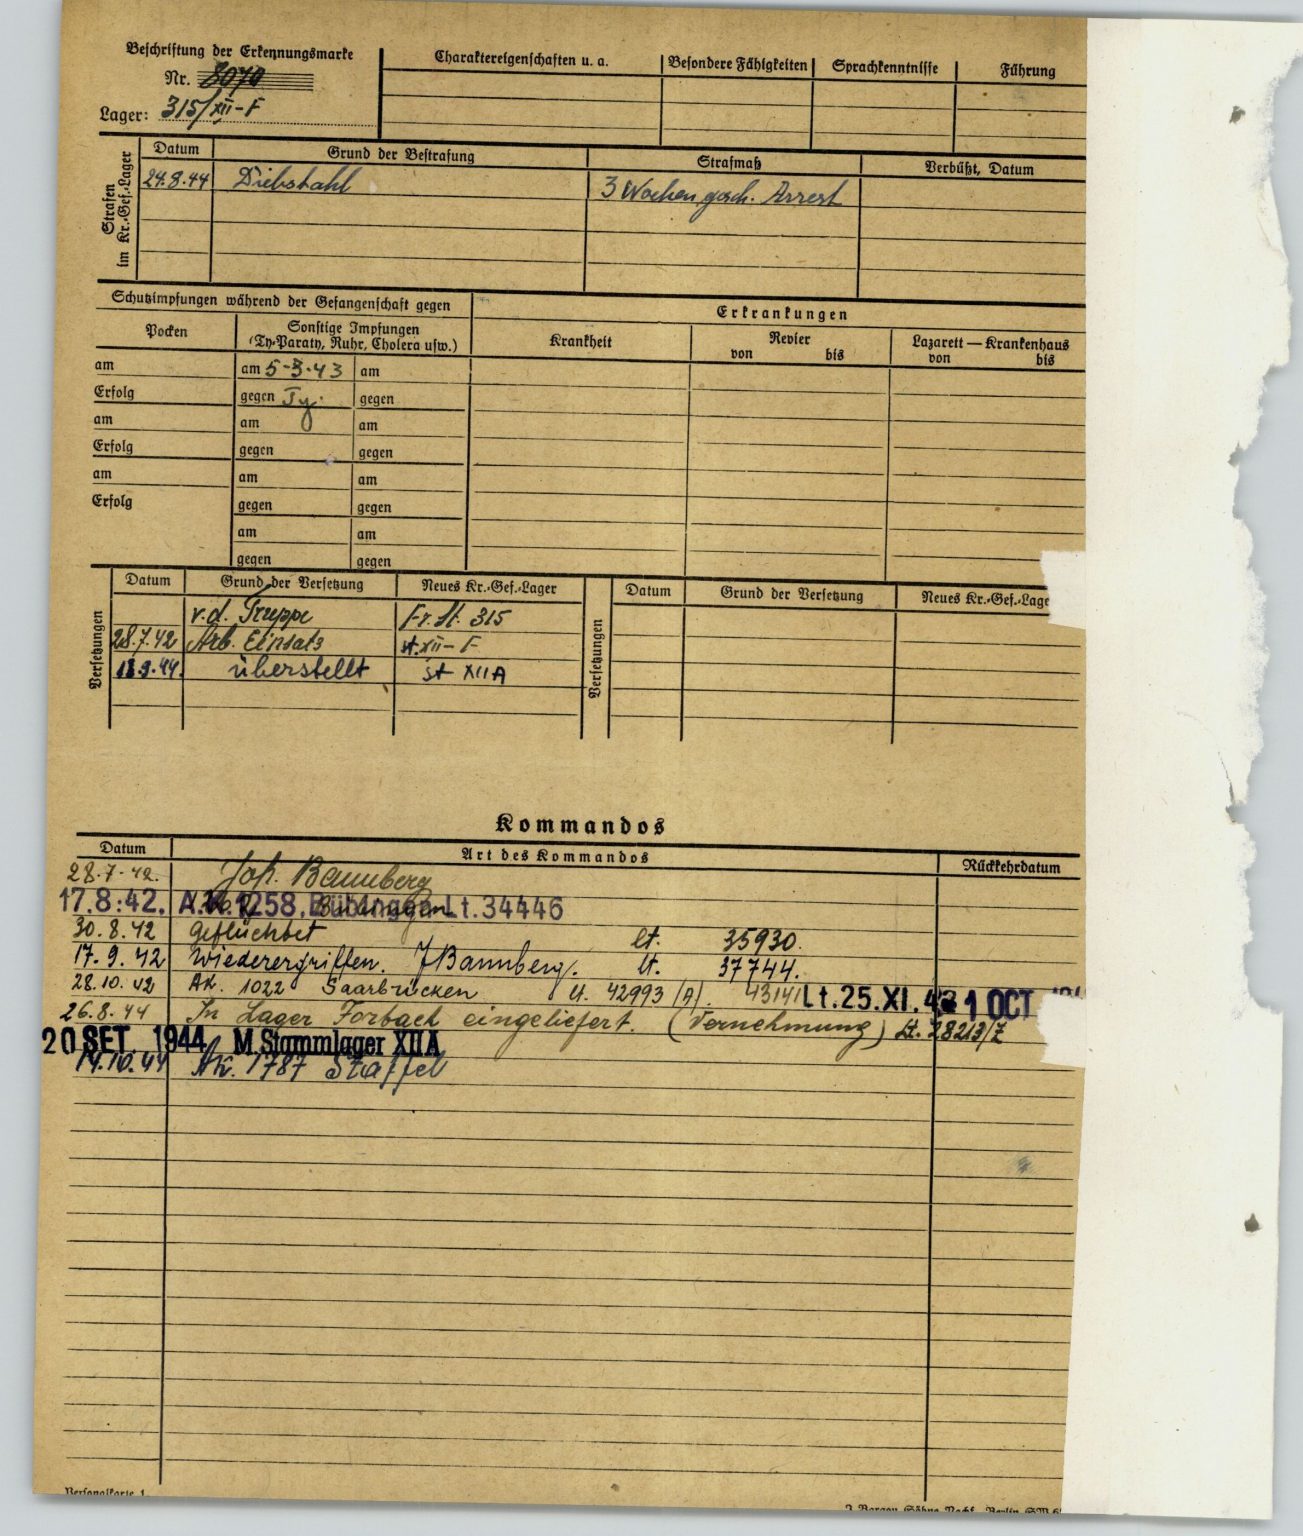 Beschriftung der Erkennungsmarke
Nr. 8070
Lager: 315/XII-F
Charaktereigenschaften u. a. Besondere Fähigkeiten Sprachkenntnisse Führung
Strafen im Kr.-Gef.-Lager
Datum Grund der Bestrafung Strafmaß Verbüßt, Datum
24.8.44 Diebstahl 3 Wochen gesch. Arrest
Schutzimpfungen während der Gefangenschaft gegen Erkrankungen
Pocken Sonstige Impfungen Krankheit Revier Lazarett — Krankenhaus
(Ty-Paraty, Ruhr, Cholera usw.) von bis von bis
am am 5-3-43 am
Erfolg gegen Ty. gegen
am am am
Erfolg gegen gegen
am am am
Erfolg gegen gegen
am am
gegen gegen
Versetzungen
Datum Grund der Versetzung Neues Kr.-Gef.-Lager
v.d. Truppe Fr. St. 315
28.7.42 Arb. Einsatz st. XII-F
18.9.44. überstellt st XIIA
Versetzungen
Datum Grund der Versetzung Neues Kr.-Gef.-Lage
Kommandos
Datum Art des Kommandos Rückkehrdatum
28.7.42. Joh. Bannberg
17.8:42. A.K.1258, Bübingen Lt.34446
30.8.42 geflüchtet lt. 35930.
17.9.42 Wiederergriffen. J Bannberg. lt. 37744.
28.10.42 AK. 1022 Saarbrücken lt. 42993 (A). 43141 Lt.25.XI.42 1 OCT
26.8.44 In Lager Forbach eingeliefert. (Vernehmung) Lt. 28213/Z
20 SET. 1944 M.Stammlager XIIA
14.10.44 AK. 1787 Staffel
Personalkarte 1.